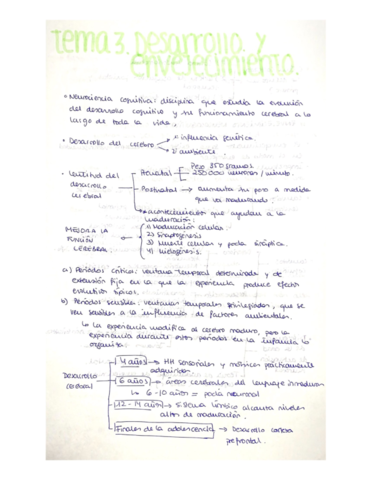 tema 3. Desarrollo y
envejecimiento.
• Neurociencia cognitiva: disciplina que estudia la evolución
del desarrollo cognitivo y su funcionamiento cerebral a lo
largo de toda la vida.
• Desarrollo del cerebro → influencia genética
→ ambiente
• Lentitud del
desarrollo
cerebral
Prenatal → Peso 350 gramos
→ 250 000 neuronas / minuto.
Postnatal → aumenta su peso a medida
que va madurando
→ acontecimientos que ayudan a la
maduración:
MEJORA LA
FUNCIÓN
CEREBRAL
1) Maduración celular
2) Sinaptogénesis
3) Muerte celular y poda sináptica.
4) Mielogénesis.
a) Períodos críticos: ventana temporal determinada y de
extensión fija en la que la experiencia produce efectos
evolutivos típicos.
b) Períodos sensibles: ventanas temporales privilegiadas, que se
ven sensibles a la influencia de factores ambientales.
↳ la experiencia modifica al cerebro maduro, pero la
experiencia durante estos períodos en la infancia lo
organiza.
Desarrollo
cerebral
4 años → HH sensoriales y motrices prácticamente
adquiridas.
6 años → áreas cerebrales del lenguaje inmaduras
↳ 6 - 10 años = poda neuronal
12 - 14 años → sistema límbico alcanza niveles
altos de maduración.
Finales de la adolescencia → Desarrollo corteza
prefrontal.